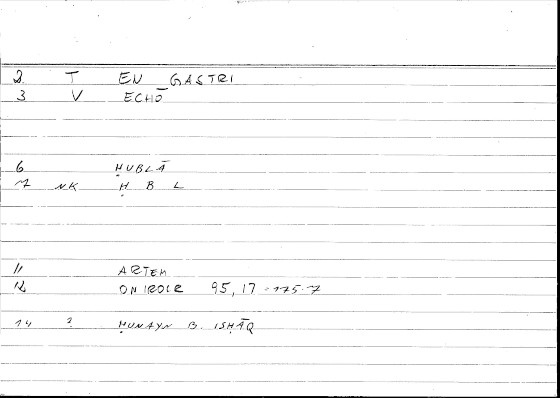 2 T EN GASTRI
3 V ECHŌ
6 ḤUBLĀ
7 NK Ḥ B L
11 ARTEM
12 ONIROCR 95,17 = 175.7
14 ? ḤUNAYN B. ISḤĀQ